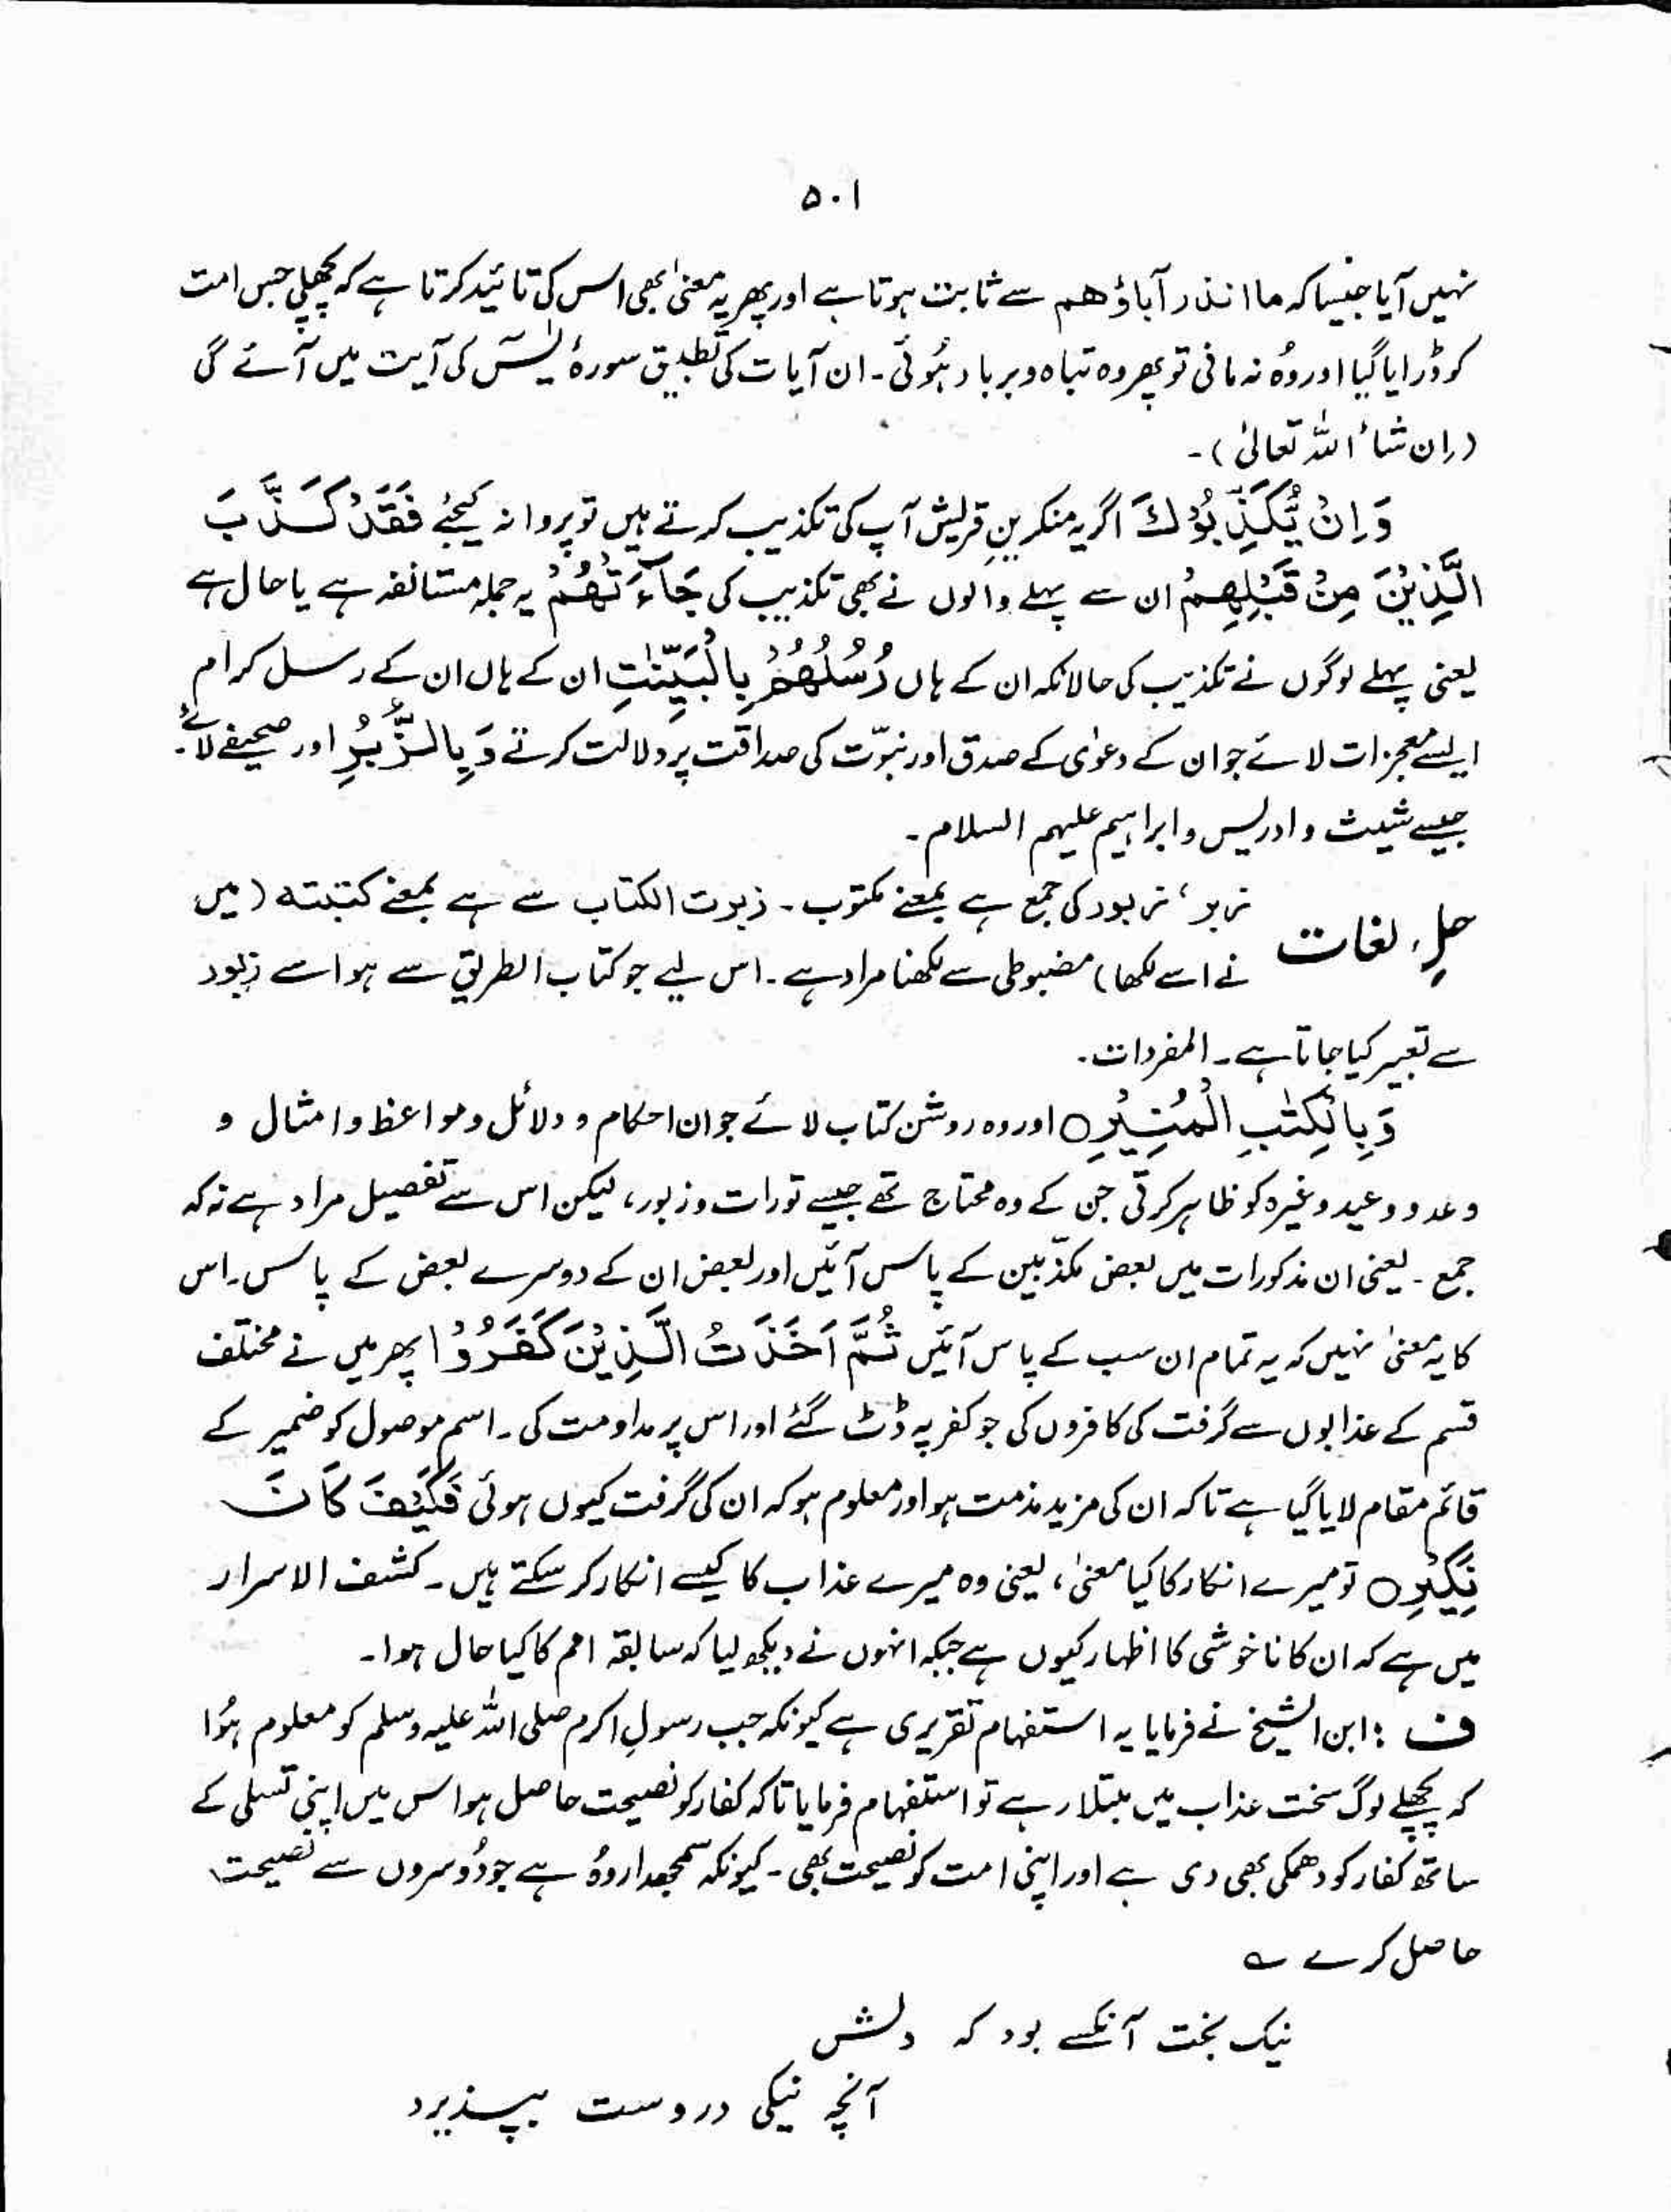 ۵۰۱
نہیں آیا جیسا کہ ما انذر آباؤھم سے ثابت ہوتا ہے اور پھر یہ معنیٰ بھی اس کی تائید کرتا ہے کہ پچھلی جس امت
کو ڈرایا گیا اور وُہ نہ مانی تو پھر وہ تباہ و برباد ہُوئی۔ ان آیات کی تطبیق سورۂ یٰسٓ کی آیت میں آئے گی
(اِن شاءَ اللہ تعالیٰ)۔
وَاِنْ یُّکَذِّبُوْكَ اگر یہ منکرینِ قریش آپ کی تکذیب کرتے ہیں تو پروا نہ کیجئے فَقَدْ کَذَّبَ
الَّذِیْنَ مِنْ قَبْلِھِمْ ان سے پہلے والوں نے بھی تکذیب کی جَآءَتْھُمْ یہ جملہ مستانفہ ہے یا حال ہے
یعنی پہلے لوگوں نے تکذیب کی حالانکہ ان کے ہاں رُسُلُھُمْ بِالْبَیِّنٰتِ ان کے ہاں ان کے رسل کرام
ایسے معجزات لائے جو ان کے دعوٰی کے صدق اور نبوّت کی صداقت پر دلالت کرتے وَ بِالزُّبُرِ اور صحیفے لائے۔
جیسے شیث و ادریس و ابراہیم علیہم السلام۔
حلِ لغات زبر، زبور کی جمع ہے بمعنے مکتوب۔ زبرت الکتاب سے ہے بمعنے کتبتہ (میں
نے اسے لکھا) مضبوطی سے لکھنا مراد ہے۔ اس لیے جو کتاب الطریق سے ہو اسے زبور
سے تعبیر کیا جاتا ہے۔ المفردات۔
وَبِالْکِتٰبِ الْمُنِیْرِ ○ اور وہ روشن کتاب لائے جو ان احکام و دلائل و مواعظ و امثال و
وعد و وعید وغیرہ کو ظاہر کرتی جن کے وہ محتاج تھے جیسے تورات و زبور، لیکن اس سے تفصیل مراد ہے نہ کہ
جمع۔ یعنی ان مذکورات میں بعض مکذّبین کے پاس آئیں اور بعض ان کے دوسرے بعض کے پاس۔ اس
کا یہ معنیٰ نہیں کہ یہ تمام ان سب کے پاس آئیں ثُمَّ اَخَذْتُ الَّذِیْنَ کَفَرُوْا پھر میں نے مختلف
قسم کے عذابوں سے گرفت کی کافروں کی جو کفر پہ ڈٹ گئے اور اس پر مداومت کی۔ اسم موصول کو ضمیر کے
قائم مقام لایا گیا ہے تاکہ ان کی مزید مذمت ہو اور معلوم ہو کہ ان کی گرفت کیوں ہوئی فَکَیْفَ کَانَ
نَکِیْرِ ○ تو میرے انکار کا کیا معنیٰ، یعنی وہ میرے عذاب کا کیسے انکار کر سکتے ہیں۔ کشف الاسرار
میں ہے کہ ان کا ناخوشی کا اظہار کیوں ہے جبکہ انہوں نے دیکھ لیا کہ سابقہ امم کا کیا حال ہوا۔
ف : ابن الشیخ نے فرمایا یہ استفہام تقریری ہے کیونکہ جب رسولِ اکرم صلی اللہ علیہ وسلم کو معلوم ہُوا
کہ پچھلے لوگ سخت عذاب میں مبتلا رہے تو استفہام فرمایا تاکہ کفار کو نصیحت حاصل ہو اس میں اپنی تسلی کے
ساتھ کفار کو دھمکی بھی دی ہے اور اپنی امت کو نصیحت بھی۔ کیونکہ سمجھدار وُہ ہے جو دُوسروں سے نصیحت
حاصل کرے ؎
نیک بخت آنکسے بود کہ دلش
آنچہ نیکی دروست بپذیرد